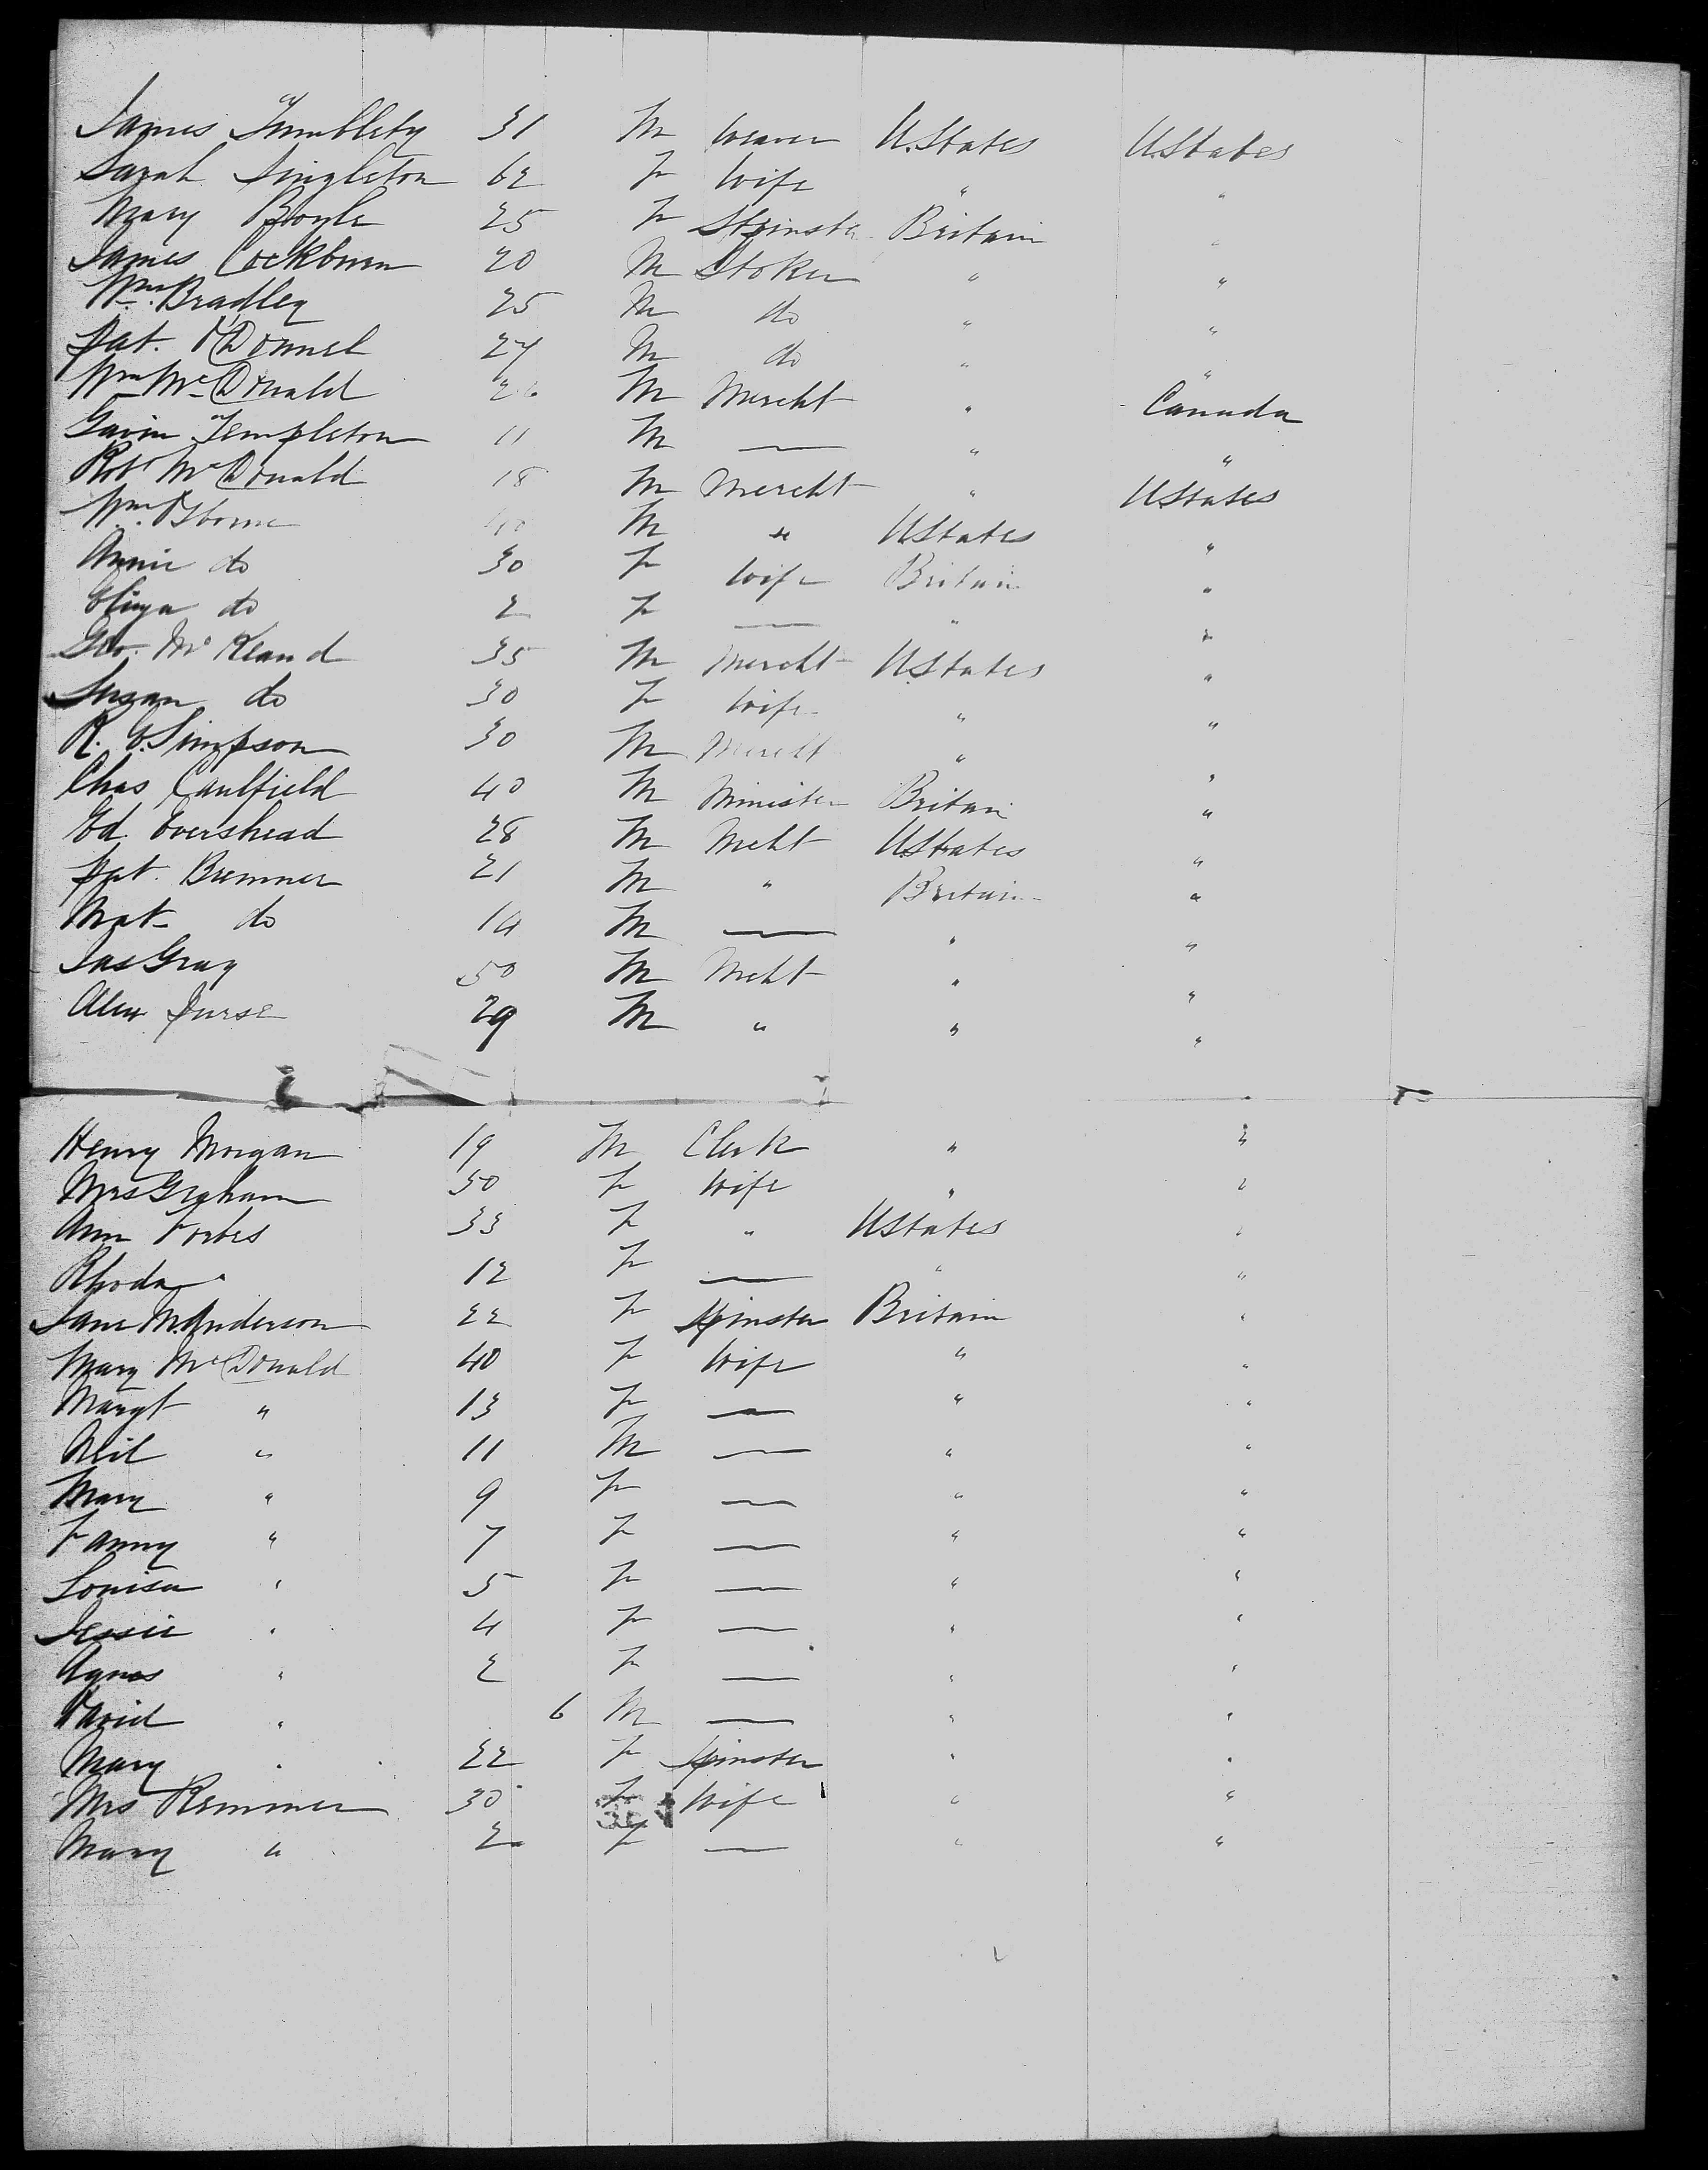 James Tumblety 31 M Weaver U.States U.States
Sarah Singleton 62 F Wife " "
Mary Boyle 25 F Spinster Britain "
James Cockburn 20 M Stoker " "
Wm. Bradley 25 M do " "
Pat. O'Donnel 27 M do " "
Wm McDonald 26 M Mercht " Canada
Gavin Templeton 11 M — " "
Robt McDonald 18 M Mercht " UStates
Wm. Osborne M " UStates "
Annie do 30 F Wife Britain "
Eliza do 2 F — " "
Geo. McKeand 35 M Mercht UStates "
Susan do 30 F Wife " "
R. G. Simpson 30 M Mercht " "
Chas Caulfield 40 M Minister Britain "
Ed. Evershead 28 M Mcht UStates "
Pat. Bremner 21 M " Britain "
Mat do 14 M — " "
Jas Gray 50 M Mcht " "
Alex 29 M " " "
Henry Morgan 19 M Clerk " "
Mrs Graham 50 F Wife " "
Ann Forbes 33 F " UStates "
Rhoda " 12 F — " "
Jane M. Anderson 22 F Spinster Britain "
Mary McDonald 40 F Wife " "
Margt " 13 F — " "
Neil " 11 M — " "
Mary " 9 F — " "
Fanny " 7 F — " "
Louisa " 5 F — " "
Jessie " 4 F — " "
Agnes " 2 F — " "
David " 6 M — " "
Mary " 22 F Spinster " "
Mrs Remmer 30 F Wife " "
Mary " 2 F — " "